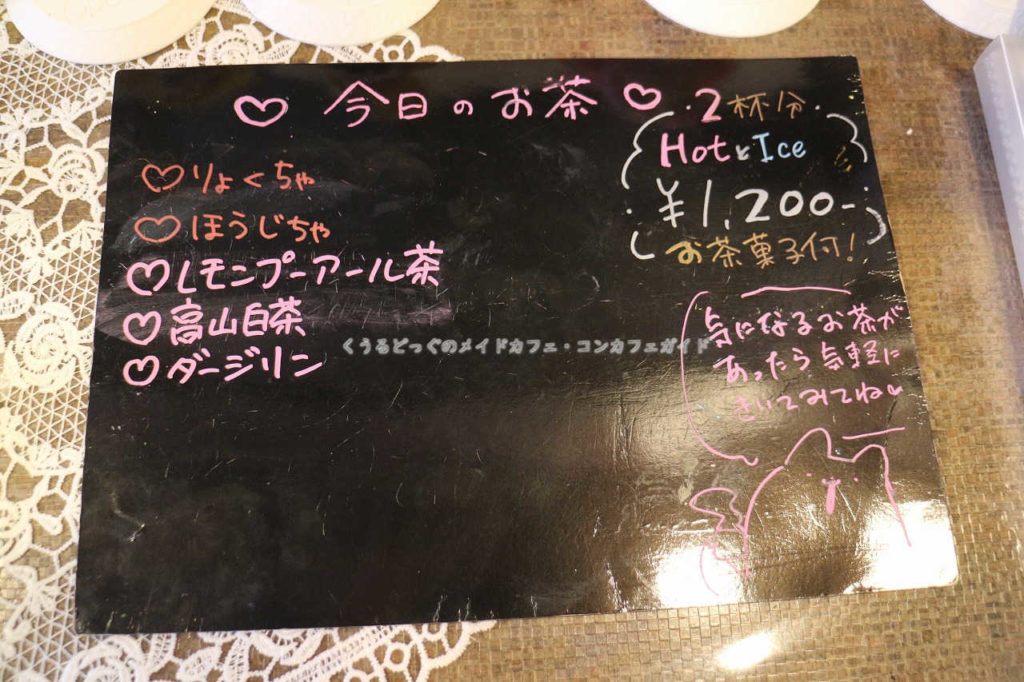 ♡ 今日のお茶 ♡
・2杯分・
HotとIce
¥1,200-
お茶菓子付!
♡りょくちゃ
♡ほうじちゃ
♡レモンプーアール茶
♡高山白茶
♡ダージリン
気になるお茶が
あったら気軽に
きいてみてね♡
くうるどっぐのメイドカフェ・コンカフェガイド